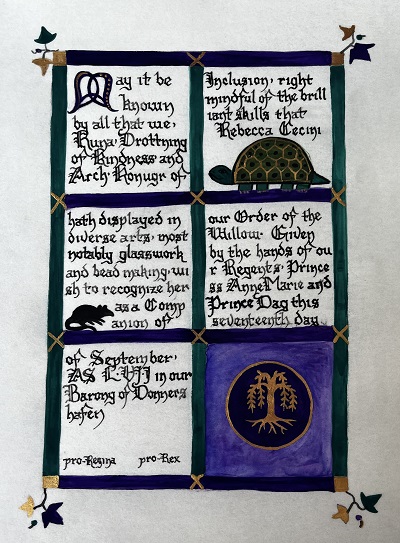 May it be
known
by all that we,
Runa Drottning
of Kindness and
Arch Konugr of
Inclusion, right
mindful of the brill
iant skills that
Rebecca Cecini
hath displayed in
diverse arts, most
notably glasswork
and bead making, wi
sh to recognize her
as a Comp
anion of
our Order of the
Willow. Given
by the hands of ou
r Regents, Prince
ss AnneMarie and
Prince Dag this
seventeenth day
of September,
AS L·VII in our
Barony of Donners
hafen
pro-Regina pro-Rex